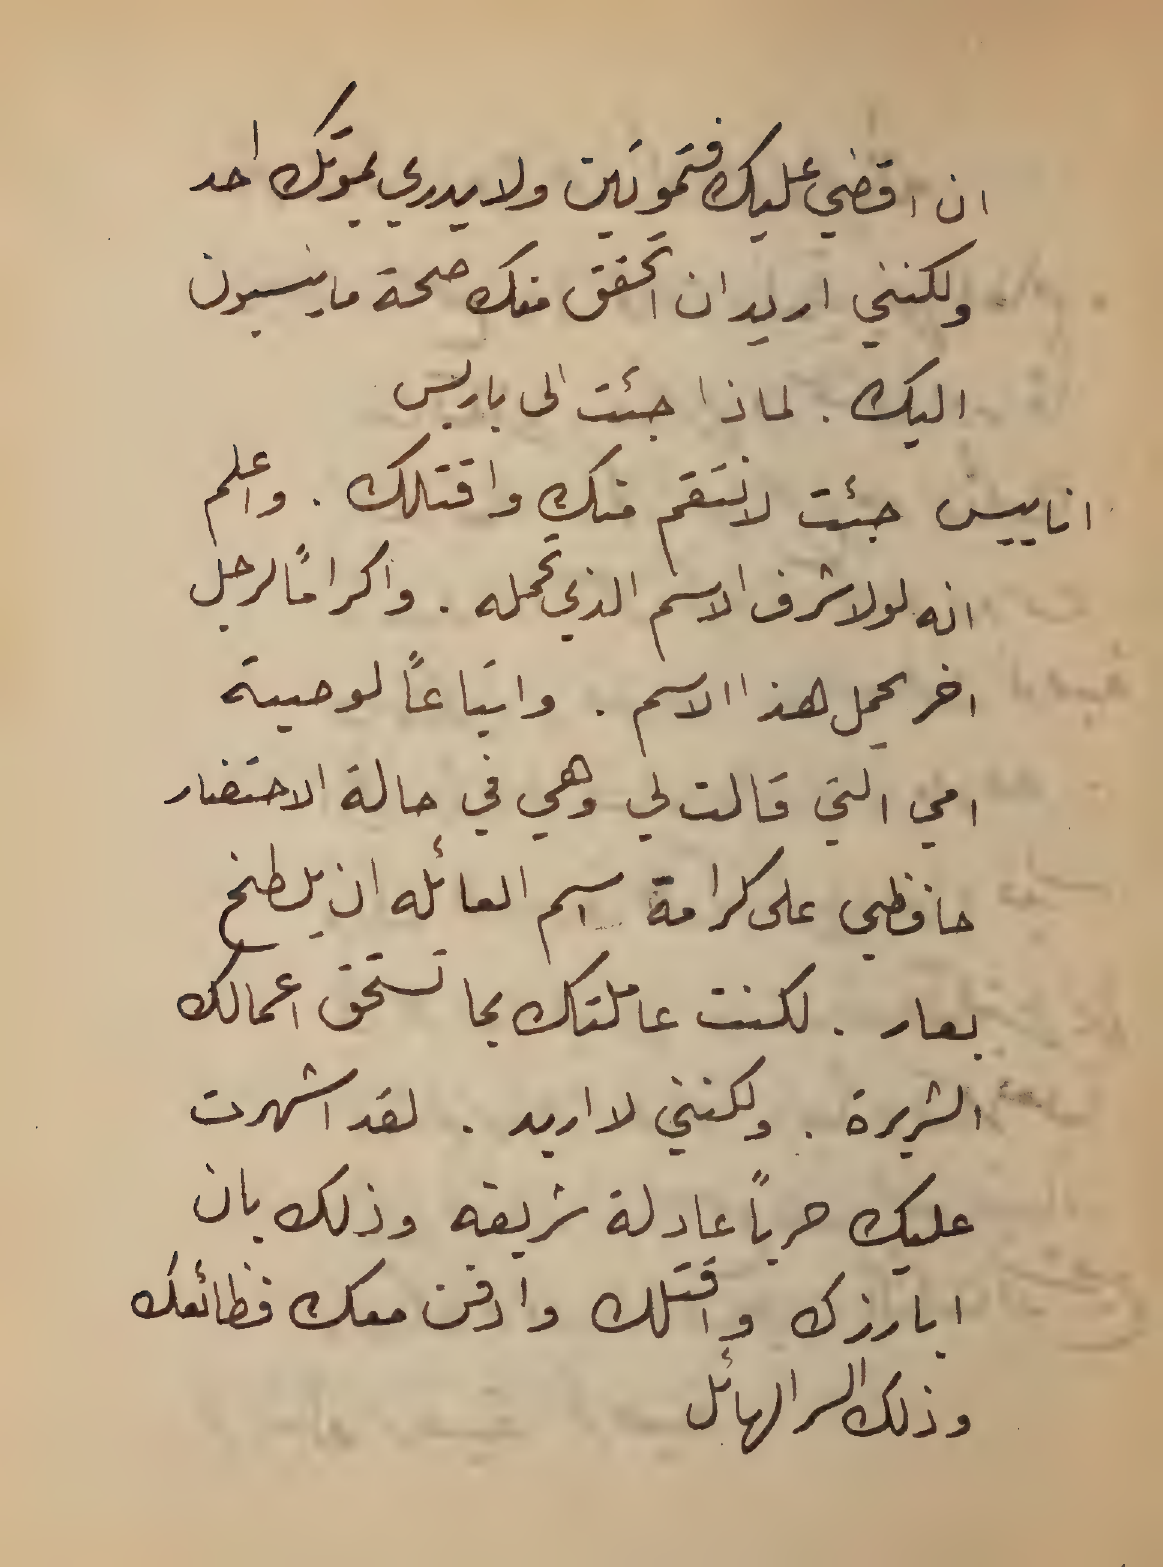 ان اقضي عليك فتموتين ولا يدري بموتك احد
ولكنني اريد ان اتحقق منك صحة ما ينسبون
اليك . لماذا جئت الى باريس
اناييس جئت لانتقم منك واقتلك . واعلم
انه لولا شرف الاسم الذي تحمله . واكراماً لرجل
اخر يحمل هذا الاسم . واتباعاً لوصية
امي التي قالت لي وهي في حالة الاحتضار
حافظي على كرامة اسم العائله ان يلطخ
بعار . لكنت عاملتك بما تستحق اعمالك
الشريرة . ولكنني لا اريد . لقد اشهرت
عليك حرباً عادلة شريفه وذلك بان
ابارزك واقتلك وادفن معك فظائعك
وذلك السر الهائل